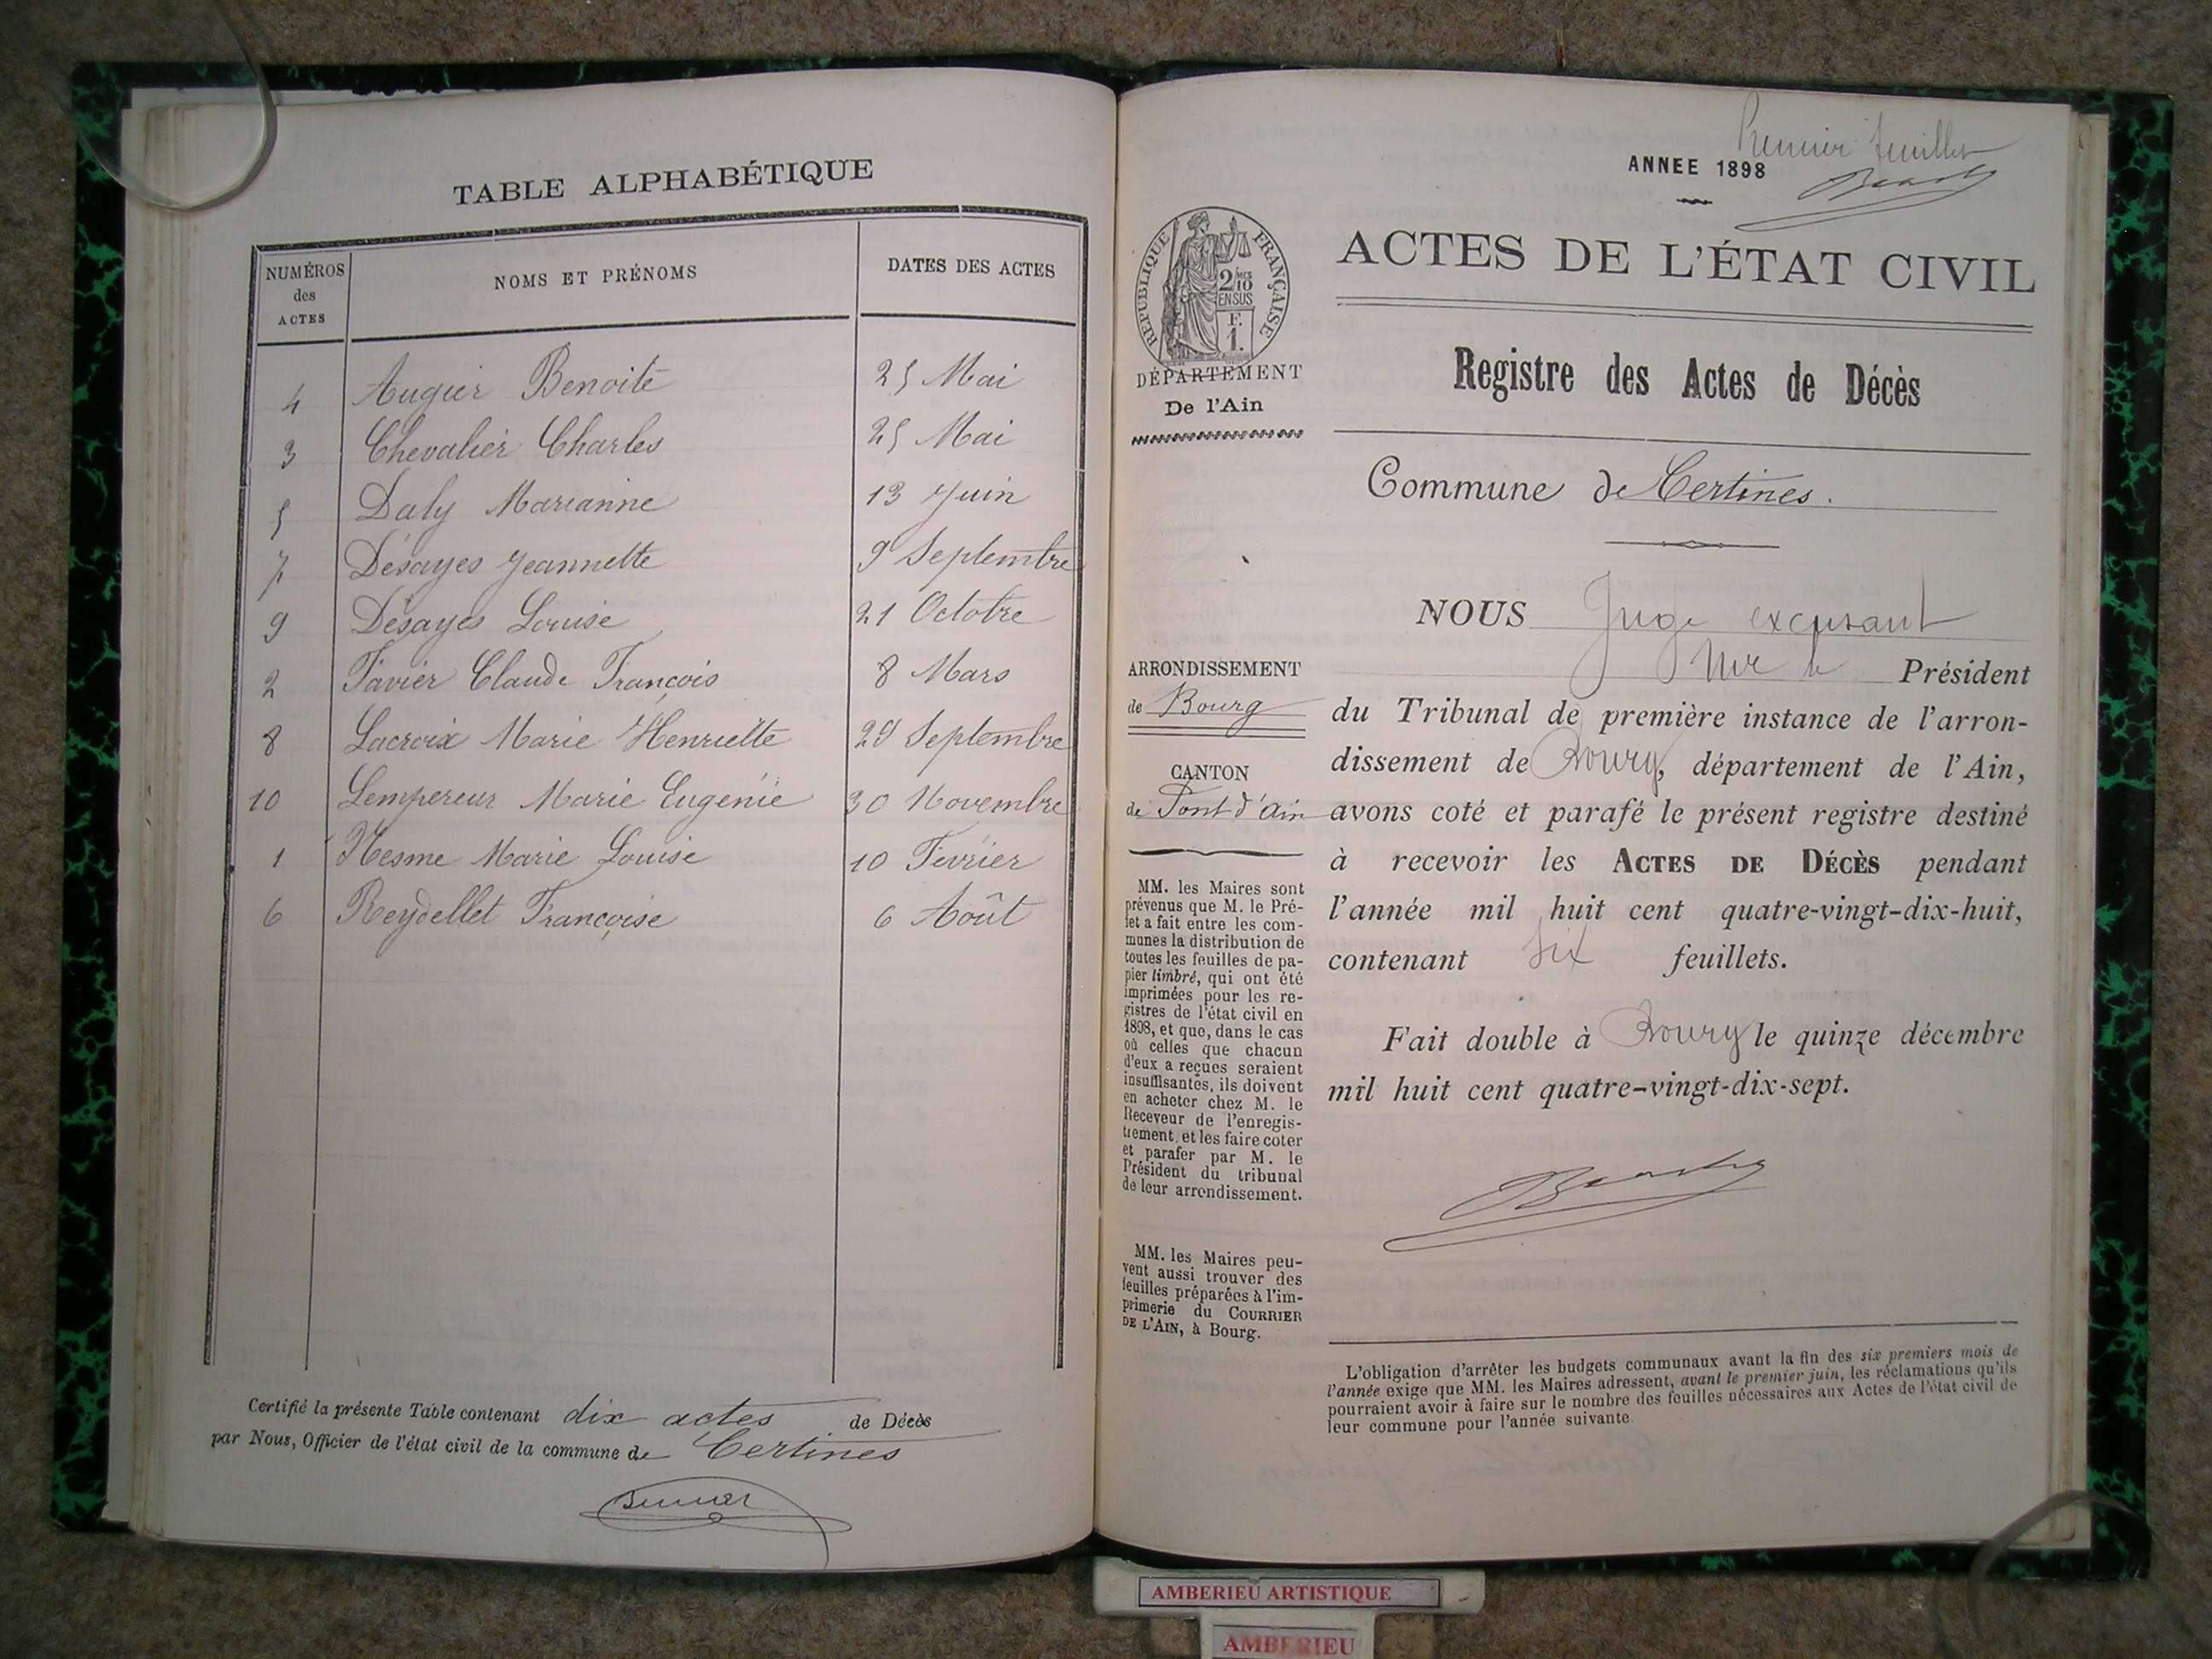 TABLE ALPHABÉTIQUE
NUMÉROS des ACTES
NOMS ET PRÉNOMS
DATES DES ACTES
4 Augier Benoite 25 Mai
3 Chevalier Charles 25 Mai
5 Daly Marianne 13 Juin
7 Désayes Jeannette 9 Septembre
9 Désayes Louise 21 Octobre
2 Favier Claude François 8 Mars
8 Lacroix Marie Henriette 29 Septembre
10 Lempereur Marie Eugénie 30 Novembre
1 Nesme Marie Louise 10 Février
6 Reydellet Françoise 6 Août
Certifié la présente Table contenant dix actes de Décès
par Nous, Officier de l'état civil de la commune de Certines
Premier feuillet
ANNEE 1898
RÉPUBLIQUE FRANÇAISE
2/10 MES
EN SUS
F.
1.
DÉPARTEMENT
De l'Ain
ACTES DE L'ÉTAT CIVIL
Registre des Actes de Décès
Commune de Certines.
ARRONDISSEMENT
de Bourg
CANTON
de Pont d'Ain
MM. les Maires sont
prévenus que M. le Pré-
fet a fait entre les com-
munes la distribution de
toutes les feuilles de pa-
pier timbré, qui ont été
imprimées pour les re-
gistres de l'état civil en
1898, et que, dans le cas
où celles que chacun
d'eux a reçues seraient
insuffisantes, ils doivent
en acheter chez M. le
Receveur de l'enregis-
trement, et les faire coter
et parafer par M. le
Président du tribunal
de leur arrondissement.
MM. les Maires peu-
vent aussi trouver des
feuilles préparées à l'im-
primerie du COURRIER
DE L'AIN, à Bourg.
NOUS Juge excusant
Mr le Président
du Tribunal de première instance de l'arron-
dissement de Bourg, département de l'Ain,
avons coté et parafé le présent registre destiné
à recevoir les ACTES DE DÉCÈS pendant
l'année mil huit cent quatre-vingt-dix-huit,
contenant six feuillets.
Fait double à Bourg le quinze décembre
mil huit cent quatre-vingt-dix-sept.
L'obligation d'arrêter les budgets communaux avant la fin des six premiers mois de
l'année exige que MM. les Maires adressent, avant le premier juin, les réclamations qu'ils
pourraient avoir à faire sur le nombre des feuilles nécessaires aux Actes de l'état civil de
leur commune pour l'année suivante.
AMBERIEU ARTISTIQUE
AMBERIEU